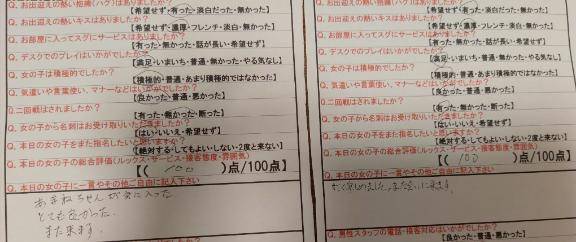 Q. お出迎えの熱い抱擁(ハグ)はありましたか？
【希望せず・有った・淡白だった・無かった】
Q. お出迎えの熱いキスはありましたか？
【希望せず・濃厚・フレンチ・淡白・無かった】
Q. お部屋に入ってスグにサービスはありましたか？
【有った・無かった・話が長い・希望せず】
Q. デスクでのプレイはいかがでしたか？
【満足・いまいち・普通・無かった・やる気なし】
Q. 女の子は積極的でしたか？
【積極的・普通・あまり積極的ではなかった】
Q. 気遣いや言葉使い、マナーなどはいかがでしたか？
【良かった・普通・悪かった】
Q. 二回戦はされましたか？
【有った・無かった・断った】
Q. 女の子から名刺はお受け取りいただきましたか？
【はい・いいえ・希望せず】
Q. 本日の女の子をまた指名したいと思いますか？
【絶対する・してもよい・しない・2度と来ない】
Q. 本日の女の子の総合評価(ルックス・サービス・接客態度・雰囲気)
【( 100 )点/100点】
Q. 本日の女の子に一言やその他ご自由に記入下さい
ちゃんが気に入った
とても良かった
また来ます。
【希望せず・有った・淡白だった・無かった】
Q. お出迎えの熱いキスはありましたか？
【希望せず・濃厚・フレンチ・淡白・無かった】
Q. お部屋に入ってスグにサービスはありましたか？
【有った・無かった・話が長い・希望せず】
Q. デスクでのプレイはいかがでしたか？
【満足・いまいち・普通・無かった・やる気なし】
Q. 女の子は積極的でしたか？
【積極的・普通・あまり積極的ではなかった】
Q. 気遣いや言葉使い、マナーなどはいかがでしたか？
【良かった・普通・悪かった】
Q. 二回戦はされましたか？
【有った・無かった・断った】
Q. 女の子から名刺はお受け取りいただきましたか？
【はい・いいえ・希望せず】
Q. 本日の女の子をまた指名したいと思いますか？
【絶対する・してもよい・しない・2度と来ない】
Q. 本日の女の子の総合評価(ルックス・サービス・接客態度・雰囲気)
【( 100 )点/100点】
Q. 本日の女の子に一言やその他ご自由に記入下さい
また会いに来ます。
Q. 男性スタッフの電話・接客対応はいかがでしたか？
【良かった・普通・悪かった】